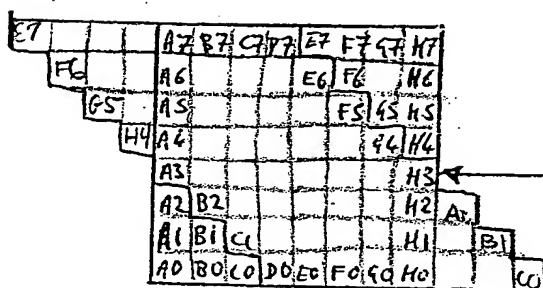 E7 A7 B7 C7 D7 E7 F7 G7 H7
F6 A6 E6 F6 H6
G5 A5 F5 G5 H5
H4 A4 G4 H4
A3 H3
A2 B2 H2
A1 B1 C1 H1 B1
A0 B0 C0 D0 E0 F0 G0 H0 C0